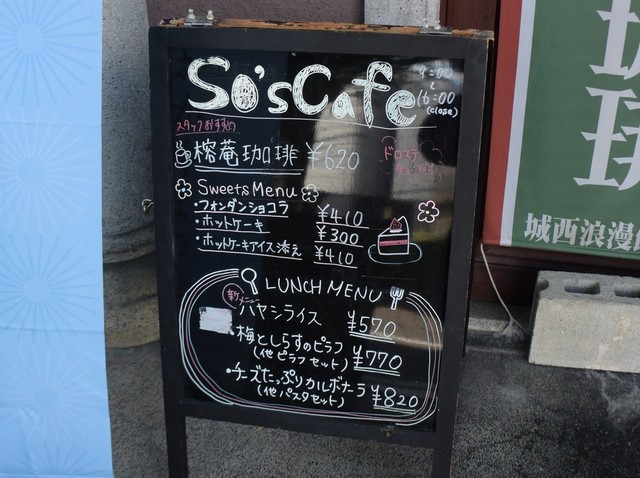 So's Cafe
9:00
~
16:00
(close)
スタッフおすすめ
榕菴珈琲 ¥620
Sweets Menu
・フォンダンショコラ ¥410
・ホットケーキ ¥300
・ホットケーキアイス添え ¥410
LUNCH MENU
新メニュー
ハヤシライス ¥570
・梅としらすのピラフ ¥770
(他ピラフセット)
・チーズたっぷりカルボナーラ ¥820
(他パスタセット)
城西浪漫